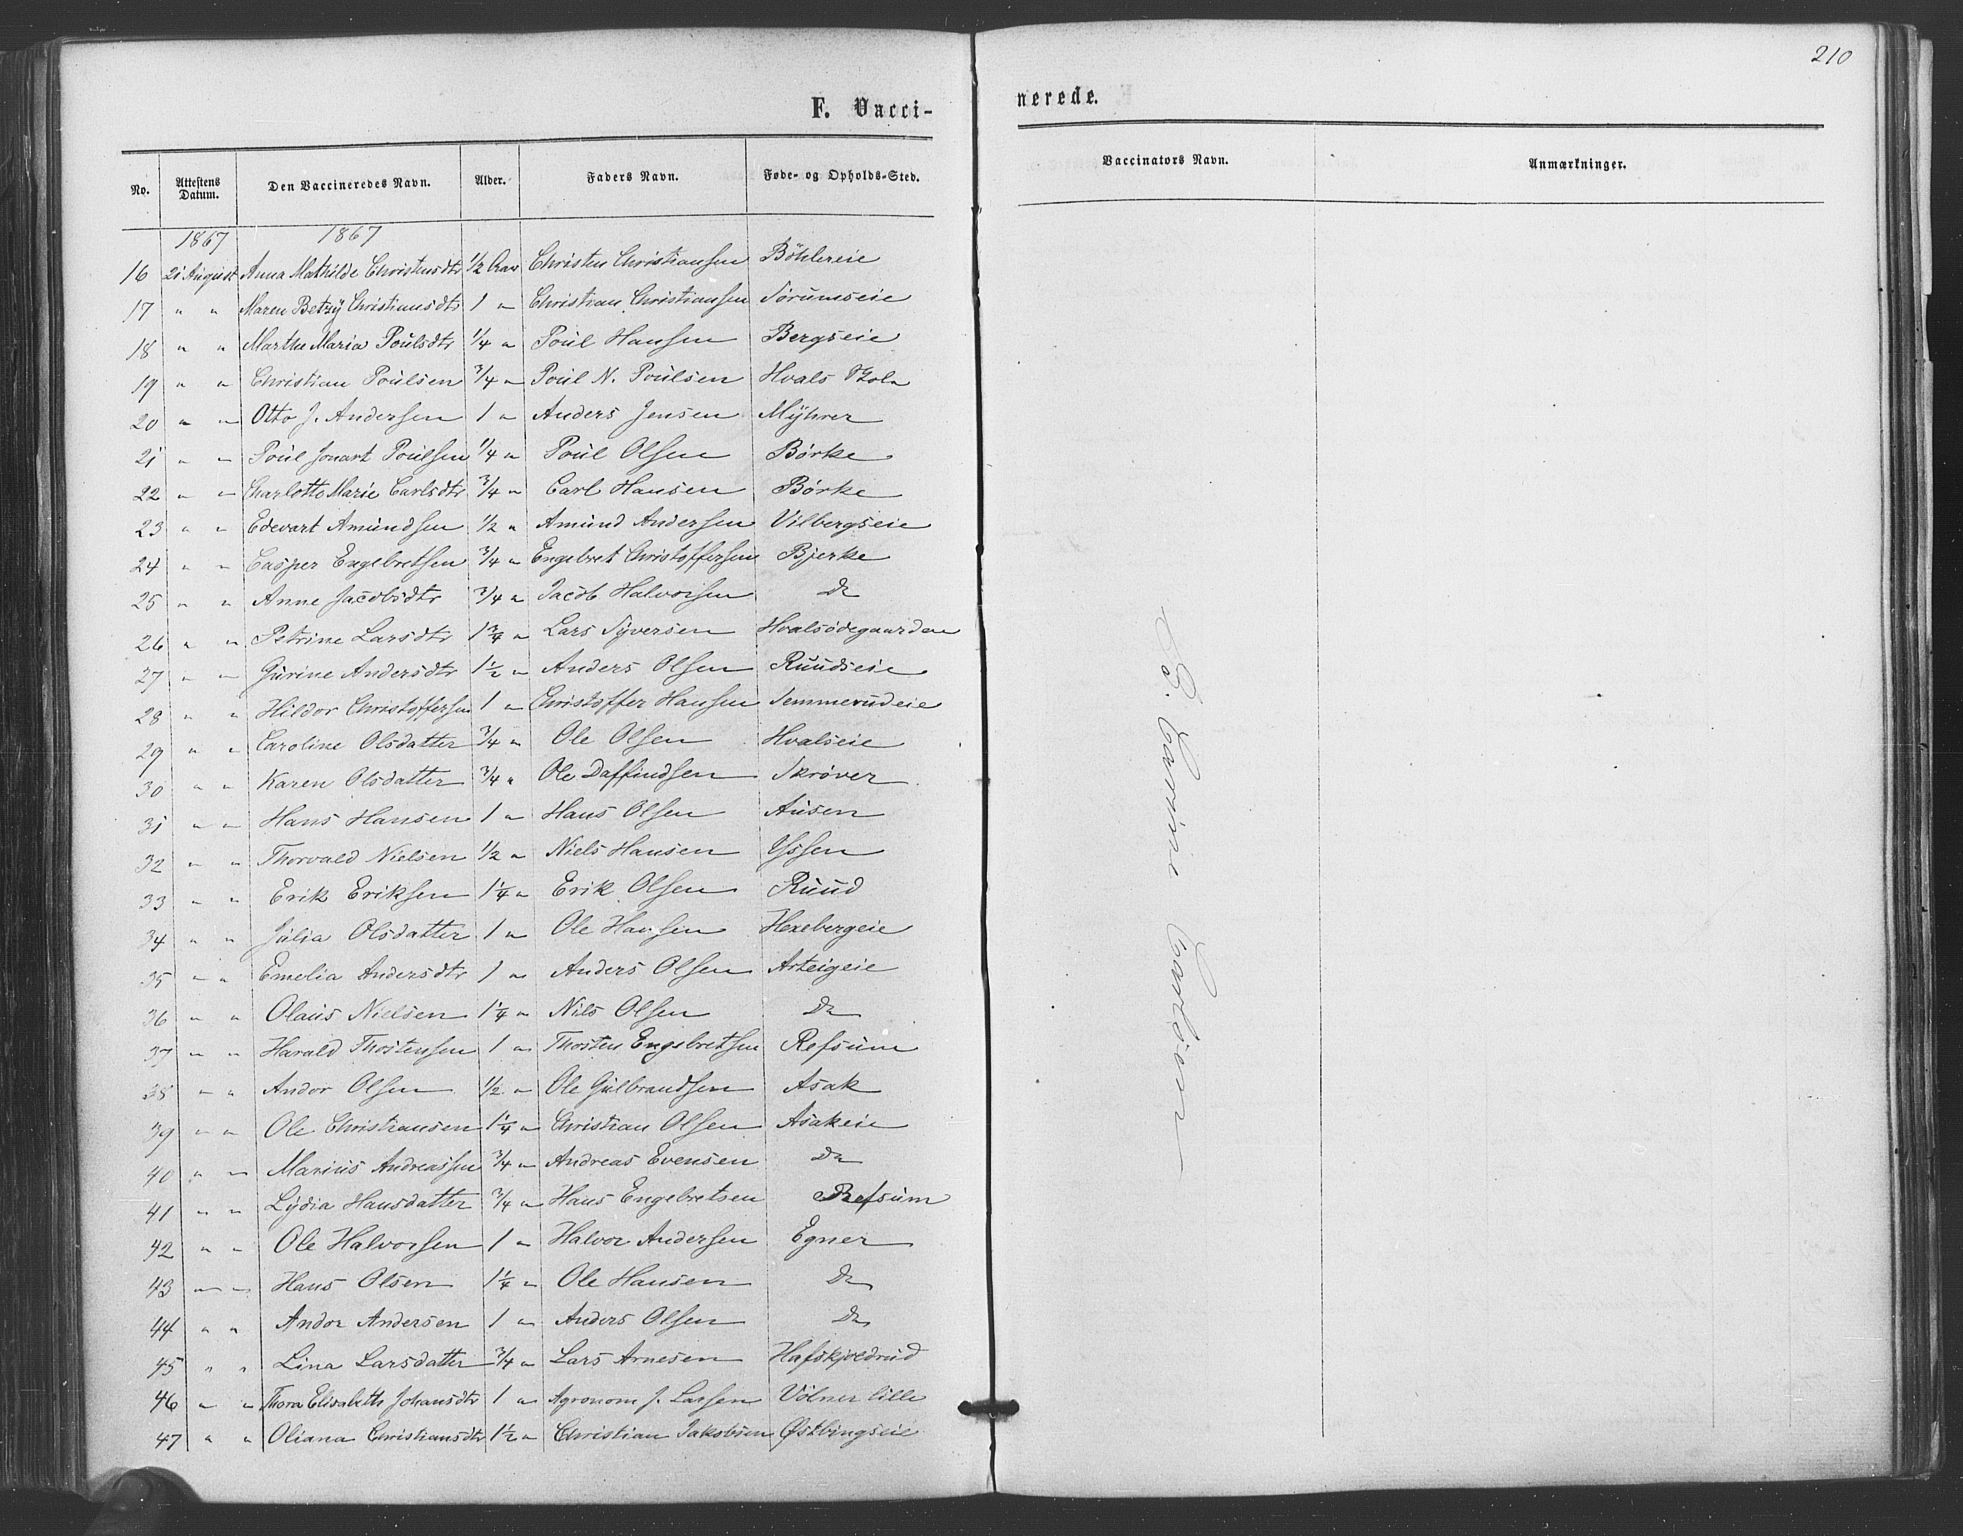 210
F. Vacci-
nerede.
No. Attestens Datum. Den Vaccineredes Navn. Alder. Faders Navn. Føde- og Opholds-Sted. Vaccinators Navn. Anmærkninger.
1867 1867
16 21 August Anna Mathilde Christensdtr 1/2 Aar Christen Christiansen Böhlereie
17 " " Maren Betzÿ Christiansdtr 1 " Christian Christiansen Sørumseie
18 " " Marthe Maria Poulsdtr 1/4 " Poul Hansen Bergseie
19 " " Christian Poulsen 3/4 " Poul N. Poulsen Hvals
20 " " Otto J. Andersen 1 " Anders Jensen Mÿhrer
21 " " Poul Poulsen 1/4 " Poul Olsen Børke
22 " " Charlotte Marie Carlsdtr 3/4 " Carl Hansen Børke
23 " " Edevart Amundsen 1/2 " Amund Andersen Vilbergseie
24 " " Casper Engebretsen 3/4 " Engebret Christoffersen Bjerke
25 " " Anne Jacobsdtr 3/4 " Jacob Halvorsen Do
26 " " Petrine Larsdtr 1 3/4 " Lars Syversen Hvalsødegaarden
27 " " Gurine Andersdtr 1 1/2 " Anders Olsen Ruudseie
28 " " Hildor Christoffersen 1 " Christoffer Hansen Semmerudeie
29 " " Caroline Olsdatter 3/4 " Ole Olsen Hvalseie
30 " " Karen Olsdatter 3/4 " Ole Daffindsen Skrøver
31 " " Hans Hansen 1 " Hans Olsen Ausen
32 " " Thorvald Nielsen 1/2 " Niels Hansen Yssen
33 " " Erik Eriksen 1 1/4 " Erik Olsen Ruud
34 " " Julia Olsdatter 1 " Ole Hansen Hexebergeie
35 " " Emelia Andersdtr 1 " Anders Olsen Arteigeie
36 " " Olaus Nielsen 1 1/4 " Nils Olsen Do
37 " " Harald Thostensen 1 " Thosten Engebretsen Refsum
38 " " Andor Olsen 1/2 " Ole Gulbrandsen Asak
39 " " Ole Christiansen 1 1/4 " Christian Olsen Asakeie
40 " " Marius Andreassen 3/4 " Andreas Evensen Do
41 " " Lydia Hansdatter 3/4 " Hans Engebretsen Refsum
42 " " Ole Halvorsen 1 " Halvor Andersen Egner
43 " " Hans Olsen 1 1/4 " Ole Hansen Do
44 " " Andor Andersen 1 " Anders Olsen Do
45 " " Lina Larsdatter 3/4 " Lars Arnesen Hafskjoldrud
46 " " Thora Elisabeth Johansdtr 1 " Agronom J. Larsen Völner lille
47 " " Oliana Christiansdtr 1 1/2 " Christian Jakobsen Østbingseie